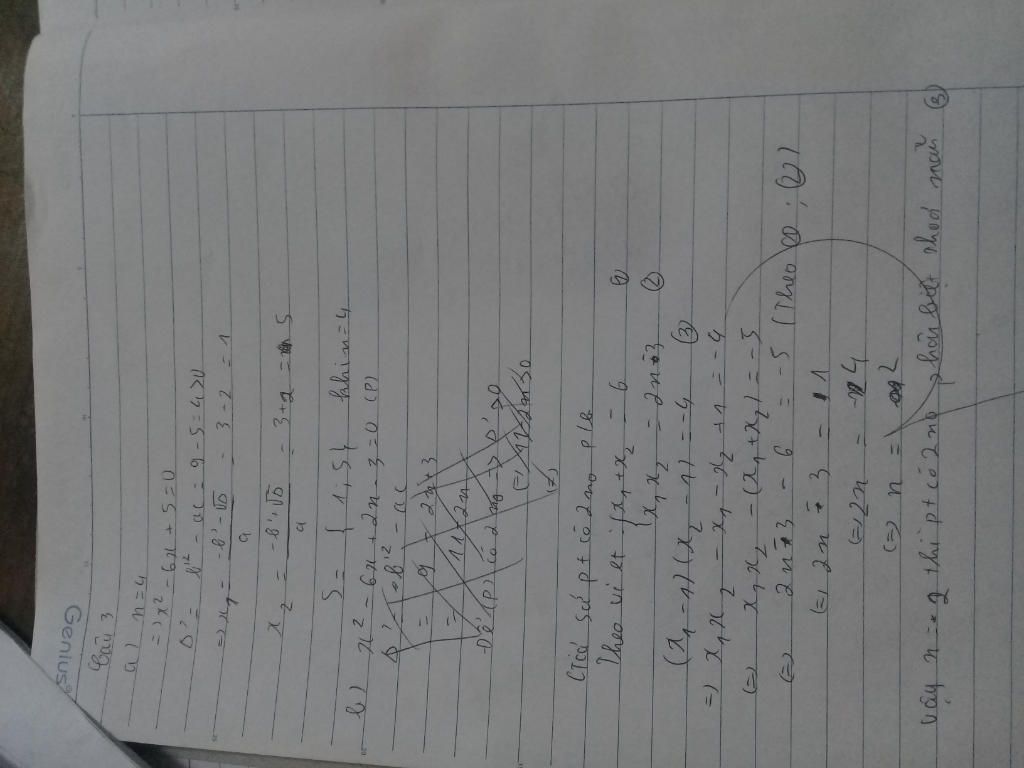 Genius
Câu 3
a) n=4
=> x² - 6x + 5=0
Δ' = b'² - ac = 9-5=4>0
=> x₁ = (-b' - √Δ')/a = 3-2 = 1
x₂ = (-b'+√Δ')/a = 3+2 = 5
S = {1,5} khi n=4
b) x² - 6x + 2n - 3=0 (P)
Δ' = b'² - ac
= 9 - 2n+3
= 12-2n
Để (P) có 2 no => Δ' >0
(=) 12-2n>0
(=)
Giả sử pt có 2 no plb
Theo vi et: { x₁+x₂ = 6 ①
x₁x₂ = 2n-3 ②
(x₁-1)(x₂-1) = -4 ③
=) x₁x₂ - x₁ - x₂ +1 = -4
(=) x₁x₂ - (x₁+x₂) = -5
(=) 2n-3 - 6 = -5 (Theo ①; ②)
(=) 2n - 3 = 1
(=) 2n = 4
(=) n = 2
Vậy n = 2 thì pt có 2 no phân biệt thoả mãn ③